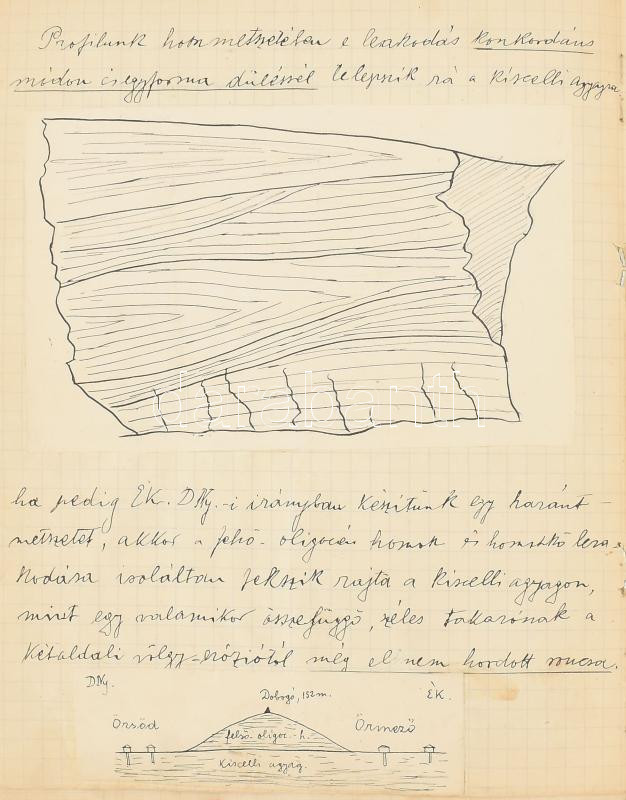 Profilunk hosszmetszetében e lerakodás konkordáns
módon és egyforma dűléssel telepszik rá a kiscelli agyagra.
darabanth
ha pedig ÉK. DNy.-i irányban készítünk egy haránt-
metszetet, akkor a felső-oligocén homok és homokkő lera-
kodása isoláltan fekszik rajta a kiscelli agyagon,
mint egy valamikor összefüggő, széles takarónak a
kétoldali völgy-eróziótól még el nem hordott roncsa.
DNy.
ÉK.
Dobogó, 152m.
Örsöd
Őrmező
felső-oligoc.-h.
Kiscelli agyag.